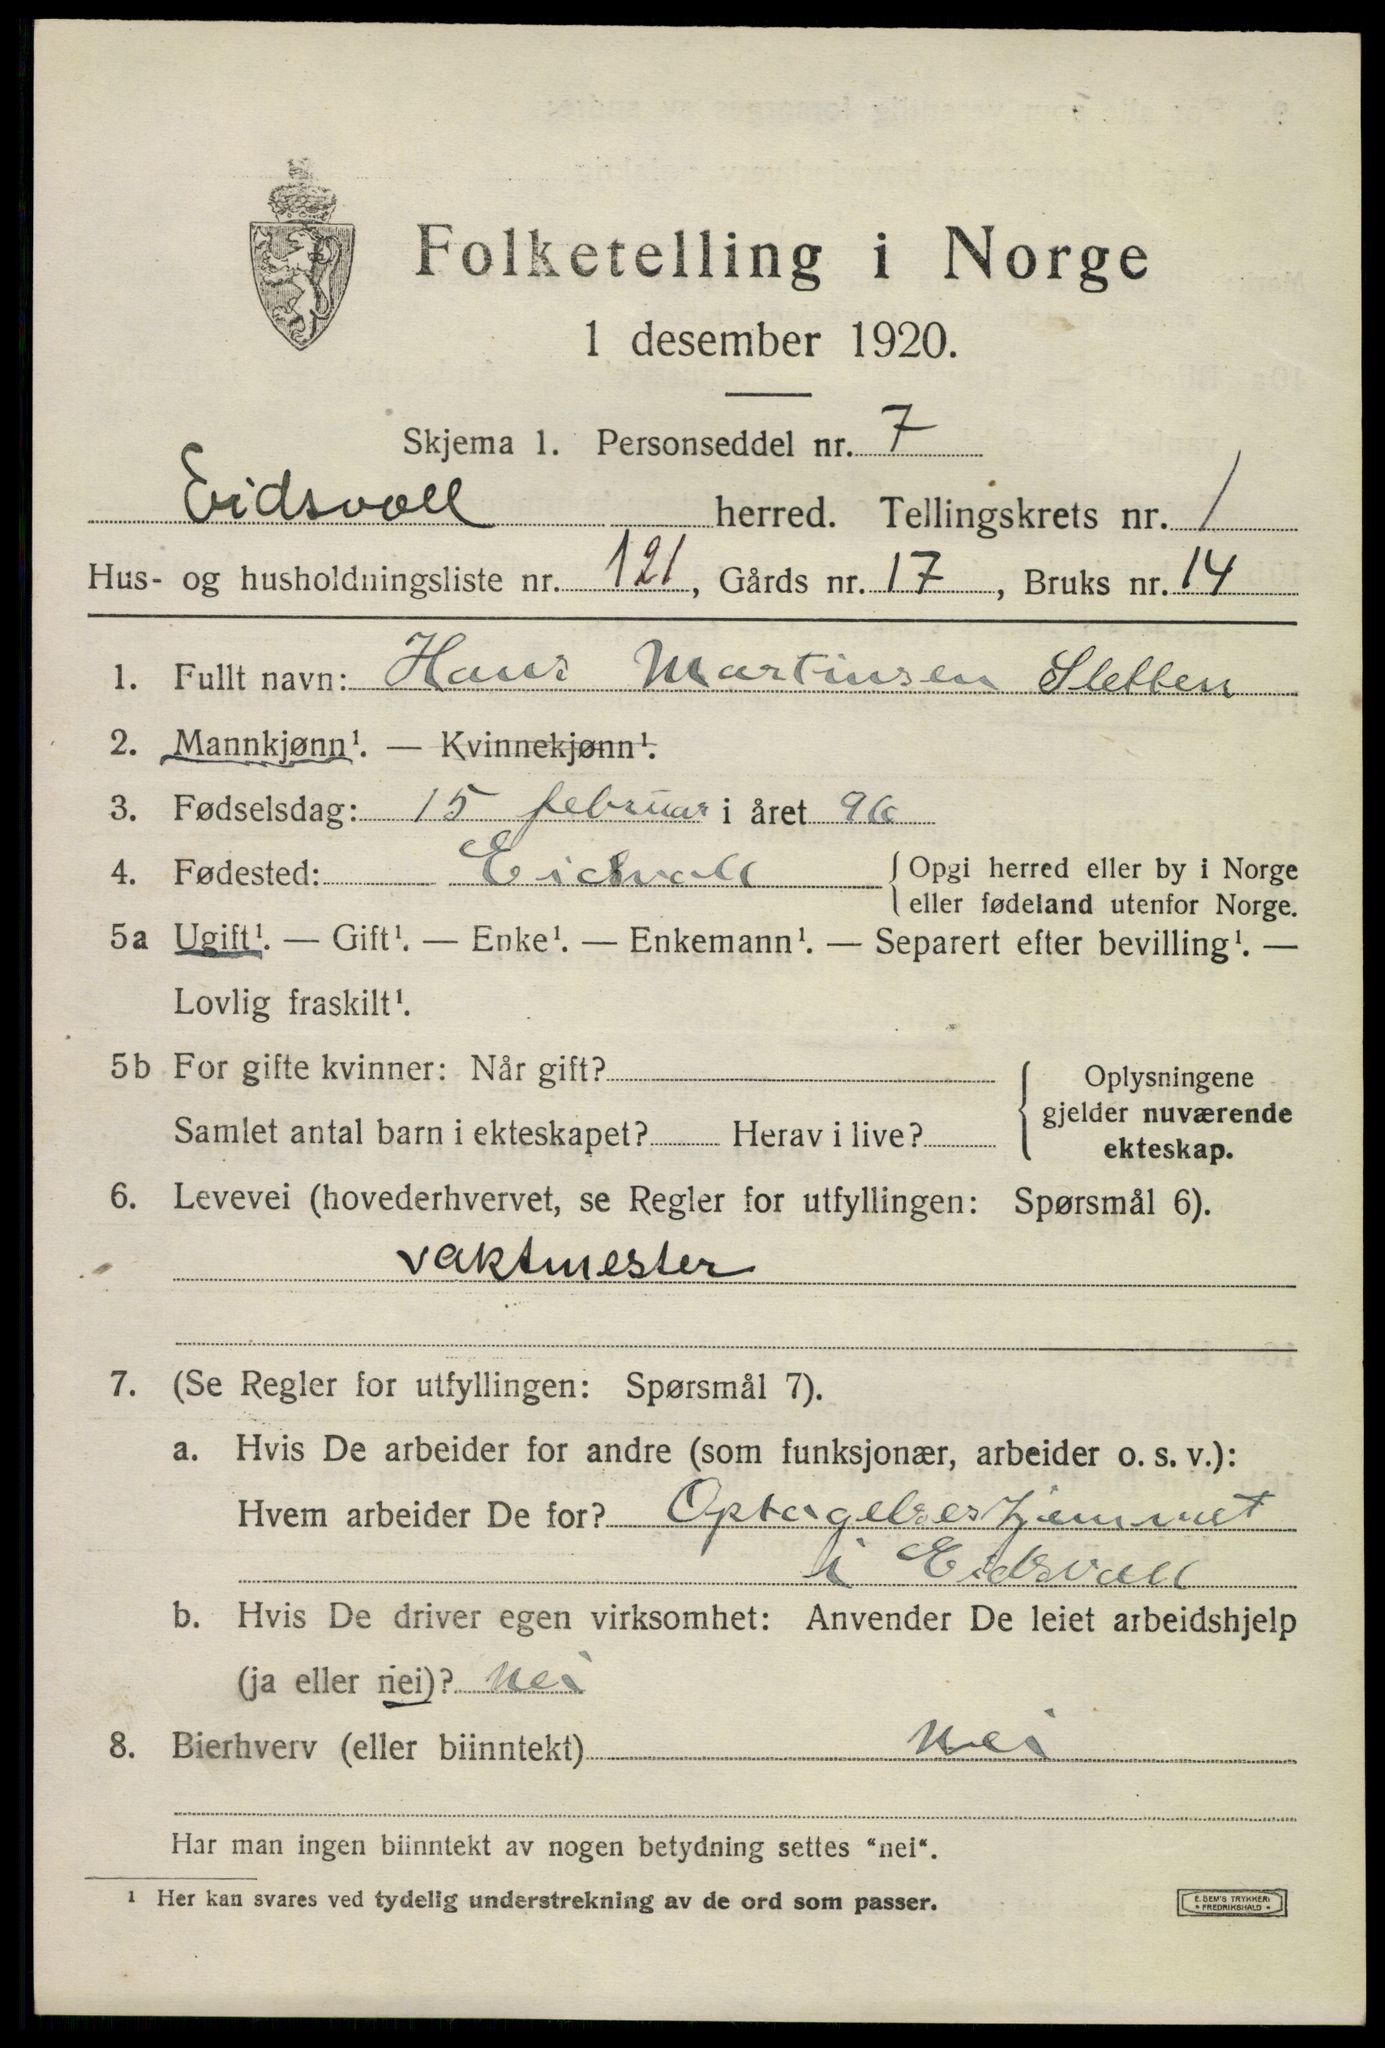 Folketelling i Norge
1 desember 1920.
Skjema 1. Personseddel nr. 7
Eidsvoll herred. Tellingskrets nr. 1
Hus- og husholdningsliste nr. 121, Gårds nr. 17, Bruks nr. 14
1. Fullt navn: Hans Martinsen Sletten
2. Mannkjønn¹. — Kvinnekjønn¹.
3. Fødselsdag: 15 februar i året 96
4. Fødested: Eidsvoll { Opgi herred eller by i Norge
eller fødeland utenfor Norge.
5a Ugift¹. — Gift¹. — Enke¹. — Enkemann¹. — Separert efter bevilling¹. —
Lovlig fraskilt¹.
5b For gifte kvinner: Når gift?
Samlet antal barn i ekteskapet? Herav i live?
Oplysningene
gjelder nuværende
ekteskap.
6. Levevei (hovederhvervet, se Regler for utfyllingen: Spørsmål 6).
vaktmester
7. (Se Regler for utfyllingen: Spørsmål 7).
a. Hvis De arbeider for andre (som funksjonær, arbeider o. s. v.):
Hvem arbeider De for? Optagelseshjemmet
i Eidsvoll
b. Hvis De driver egen virksomhet: Anvender De leiet arbeidshjelp
(ja eller nei)? Nei
8. Bierhverv (eller biinntekt) Nei
Har man ingen biinntekt av nogen betydning settes "nei".
¹ Her kan svares ved tydelig understrekning av de ord som passer.
E. SEM'S TRYKKERI
FREDRIKSHALD